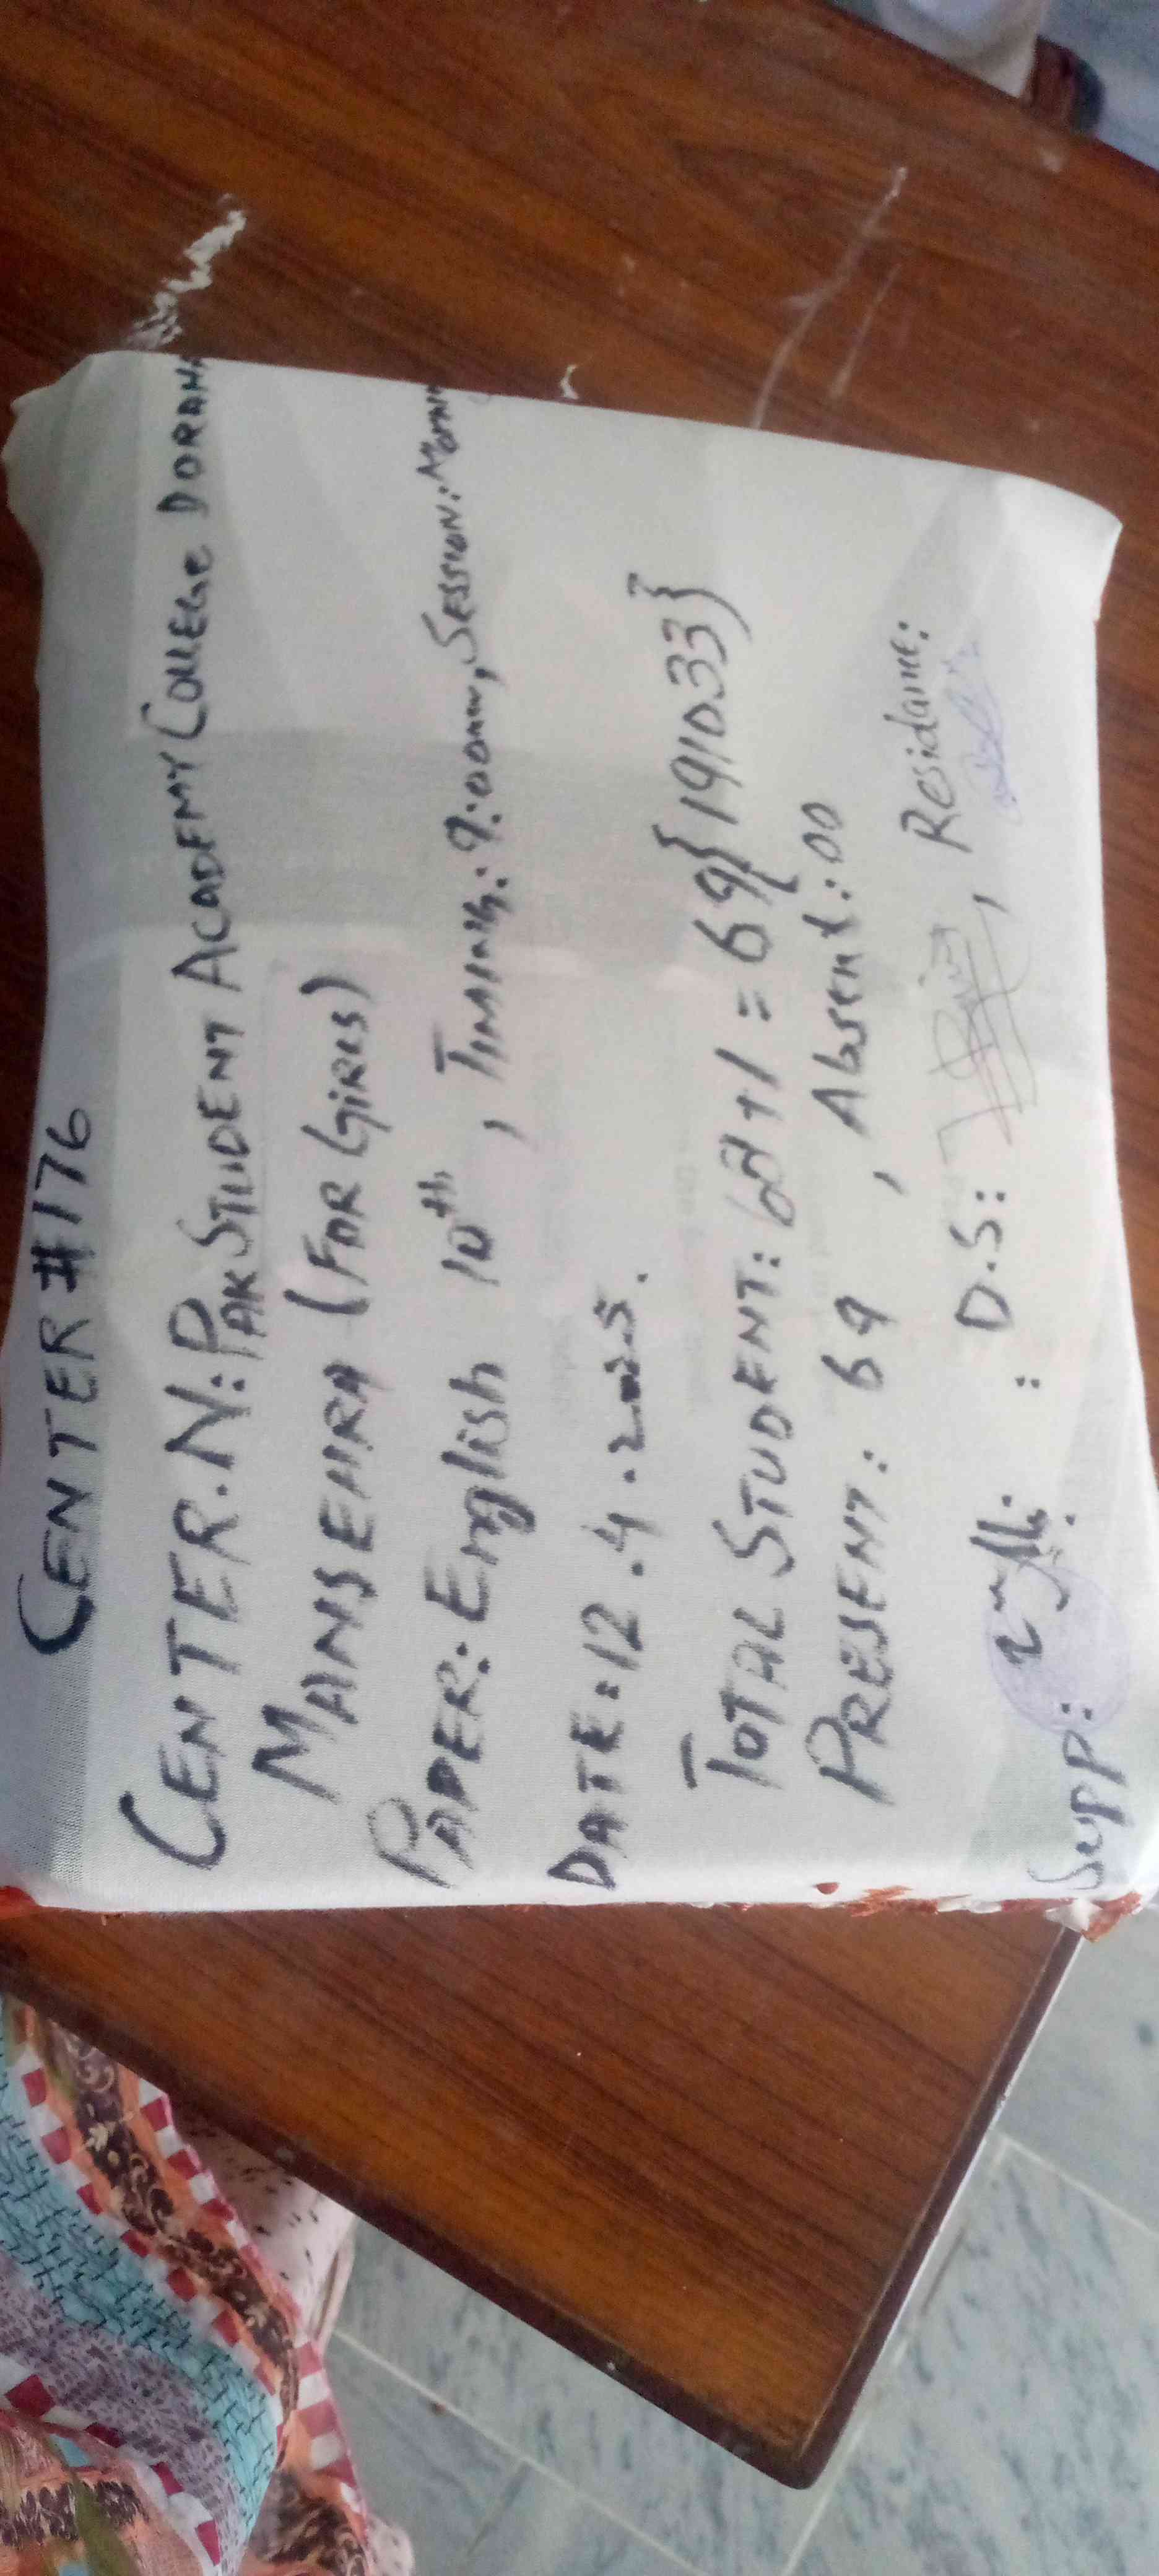 CENTER # 176
CENTER.N: PAK STUDENT ACADEMY COLLEGE DORAHA
MANSEHRA (FOR GIRLS)
PAPER: English 10th, TIMING: 9:00am, SESSION: Morn
DATE: 12.4.2025.
TOTAL STUDENT: 68+1 = 69 {191033}
PRESENT: 69, Absent: 00
Supp: : D.S: , Residane: